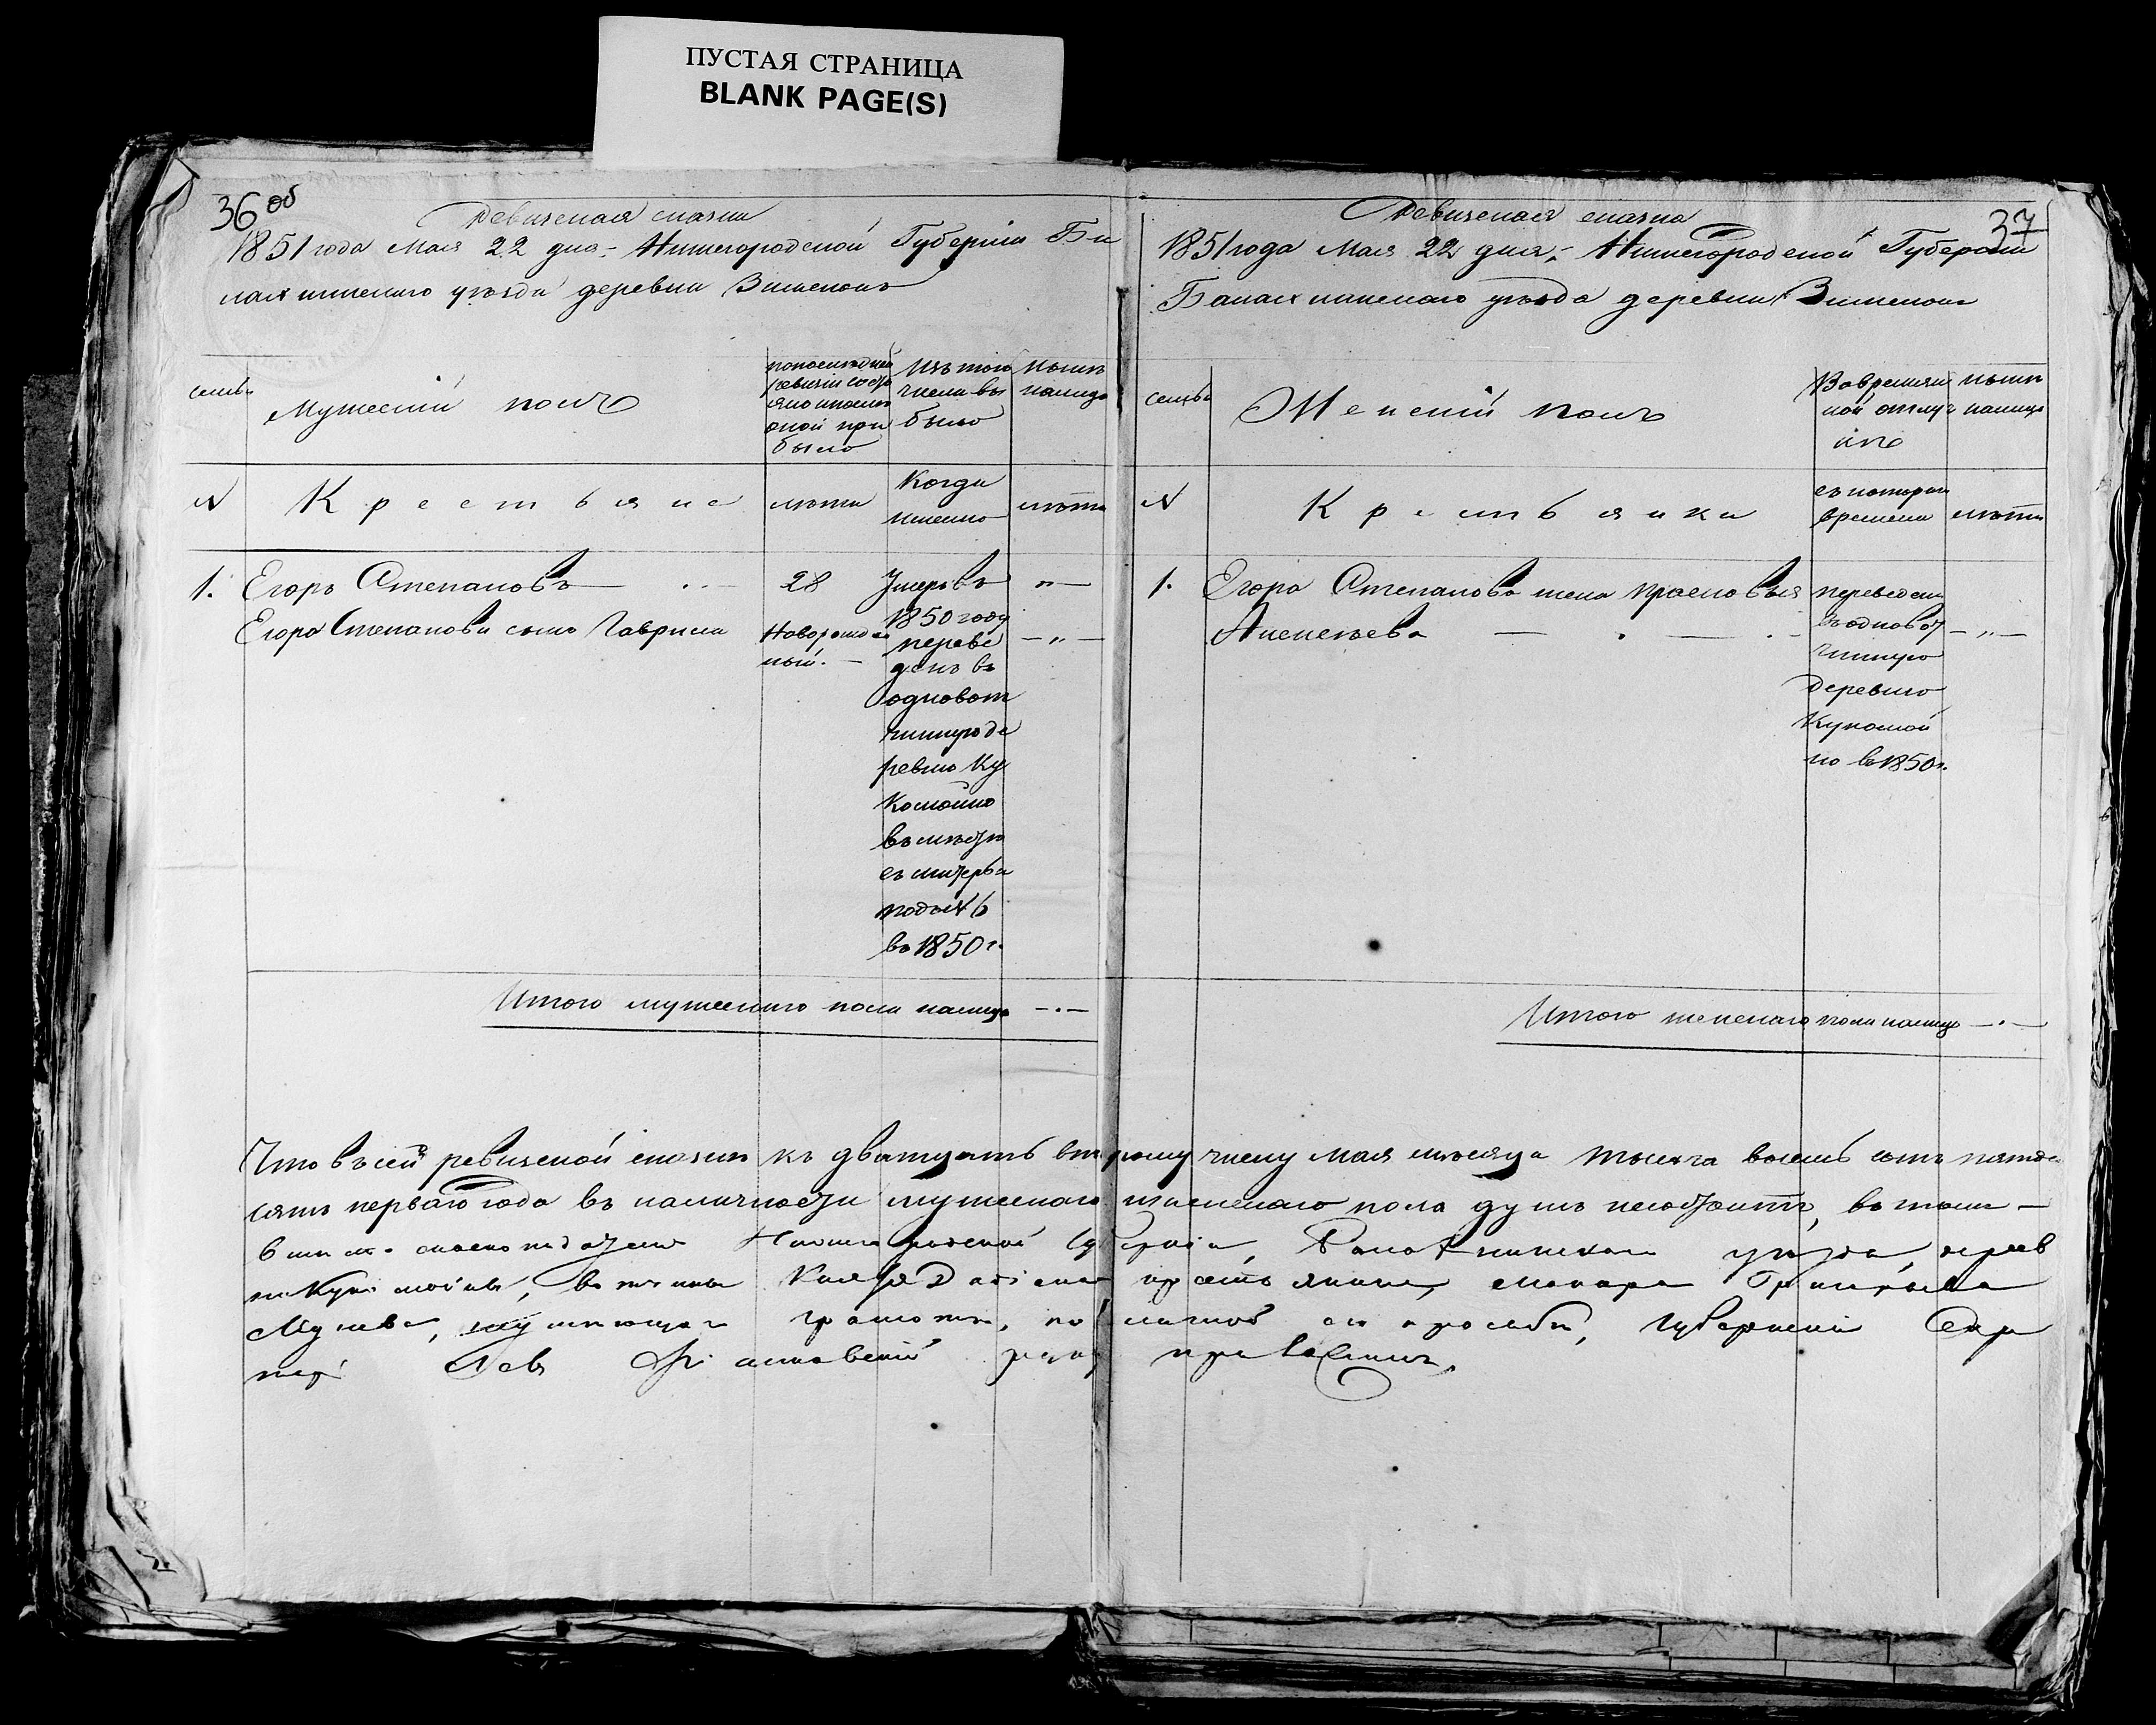 ПУСТАЯ СТРАНИЦА
BLANK PAGE(S)
36 об
Ревизская сказка
1851 года Мая 22 дня. Нижегородской Губерніи Ба
лахнинскаго уѣзда деревни Зименокъ
семьи
Мужескій полъ
по последней
ревизіи состо
яло и после
оной при
было
Изъ того
числа вы
было
Ныне
налицо
N
Крестьяне
лѣта
Когда
именно
лѣта
1. Егоръ Степановъ — 28 Умеръ въ
1850 году „ —
Егора Степанова сынъ Гаврила Новорожден
ный. —
переве
денъ въ
одновот
чинную де
ревню Ку
комойно
въ мѣсте
съ матерью
подъ N 6
въ 1850 г. — „ —
Итого мужескаго пола налицо — . —
37
Ревизская сказка
1851 года Мая 22 дня. Нижегородской Губерніи
Балахнинскаго уѣзда деревни Зименокъ
семьи
Женскій полъ
Во времян
ной отлуч
кѣ
ныне
налицо
N
Крестьянки
съ котораго
времени
лѣта
1. Егора Степанова жена Прасковья
Аксеньева — . — . —
переведена
въ одновот
чинную
деревню
Кукомой
но въ 1850 г. — „ —
Итого женскаго пола налицо — . —
Что въ сей ревизской сказки къ двадцать второму числу Мая мѣсяца тысяча восемь сотъ пятьде
сятъ перваго года въ наличности мужескаго и женскаго пола душъ не состоитъ, въ томъ —
Нижегородской Губерніи, Балахнинскаго уѣзда, дерев
ни вотчины Князя крестьянина, Макара Григорьева
грамоте, по личной его просьбе, Губернскій Секре
тарь Левъ руку приложилъ.